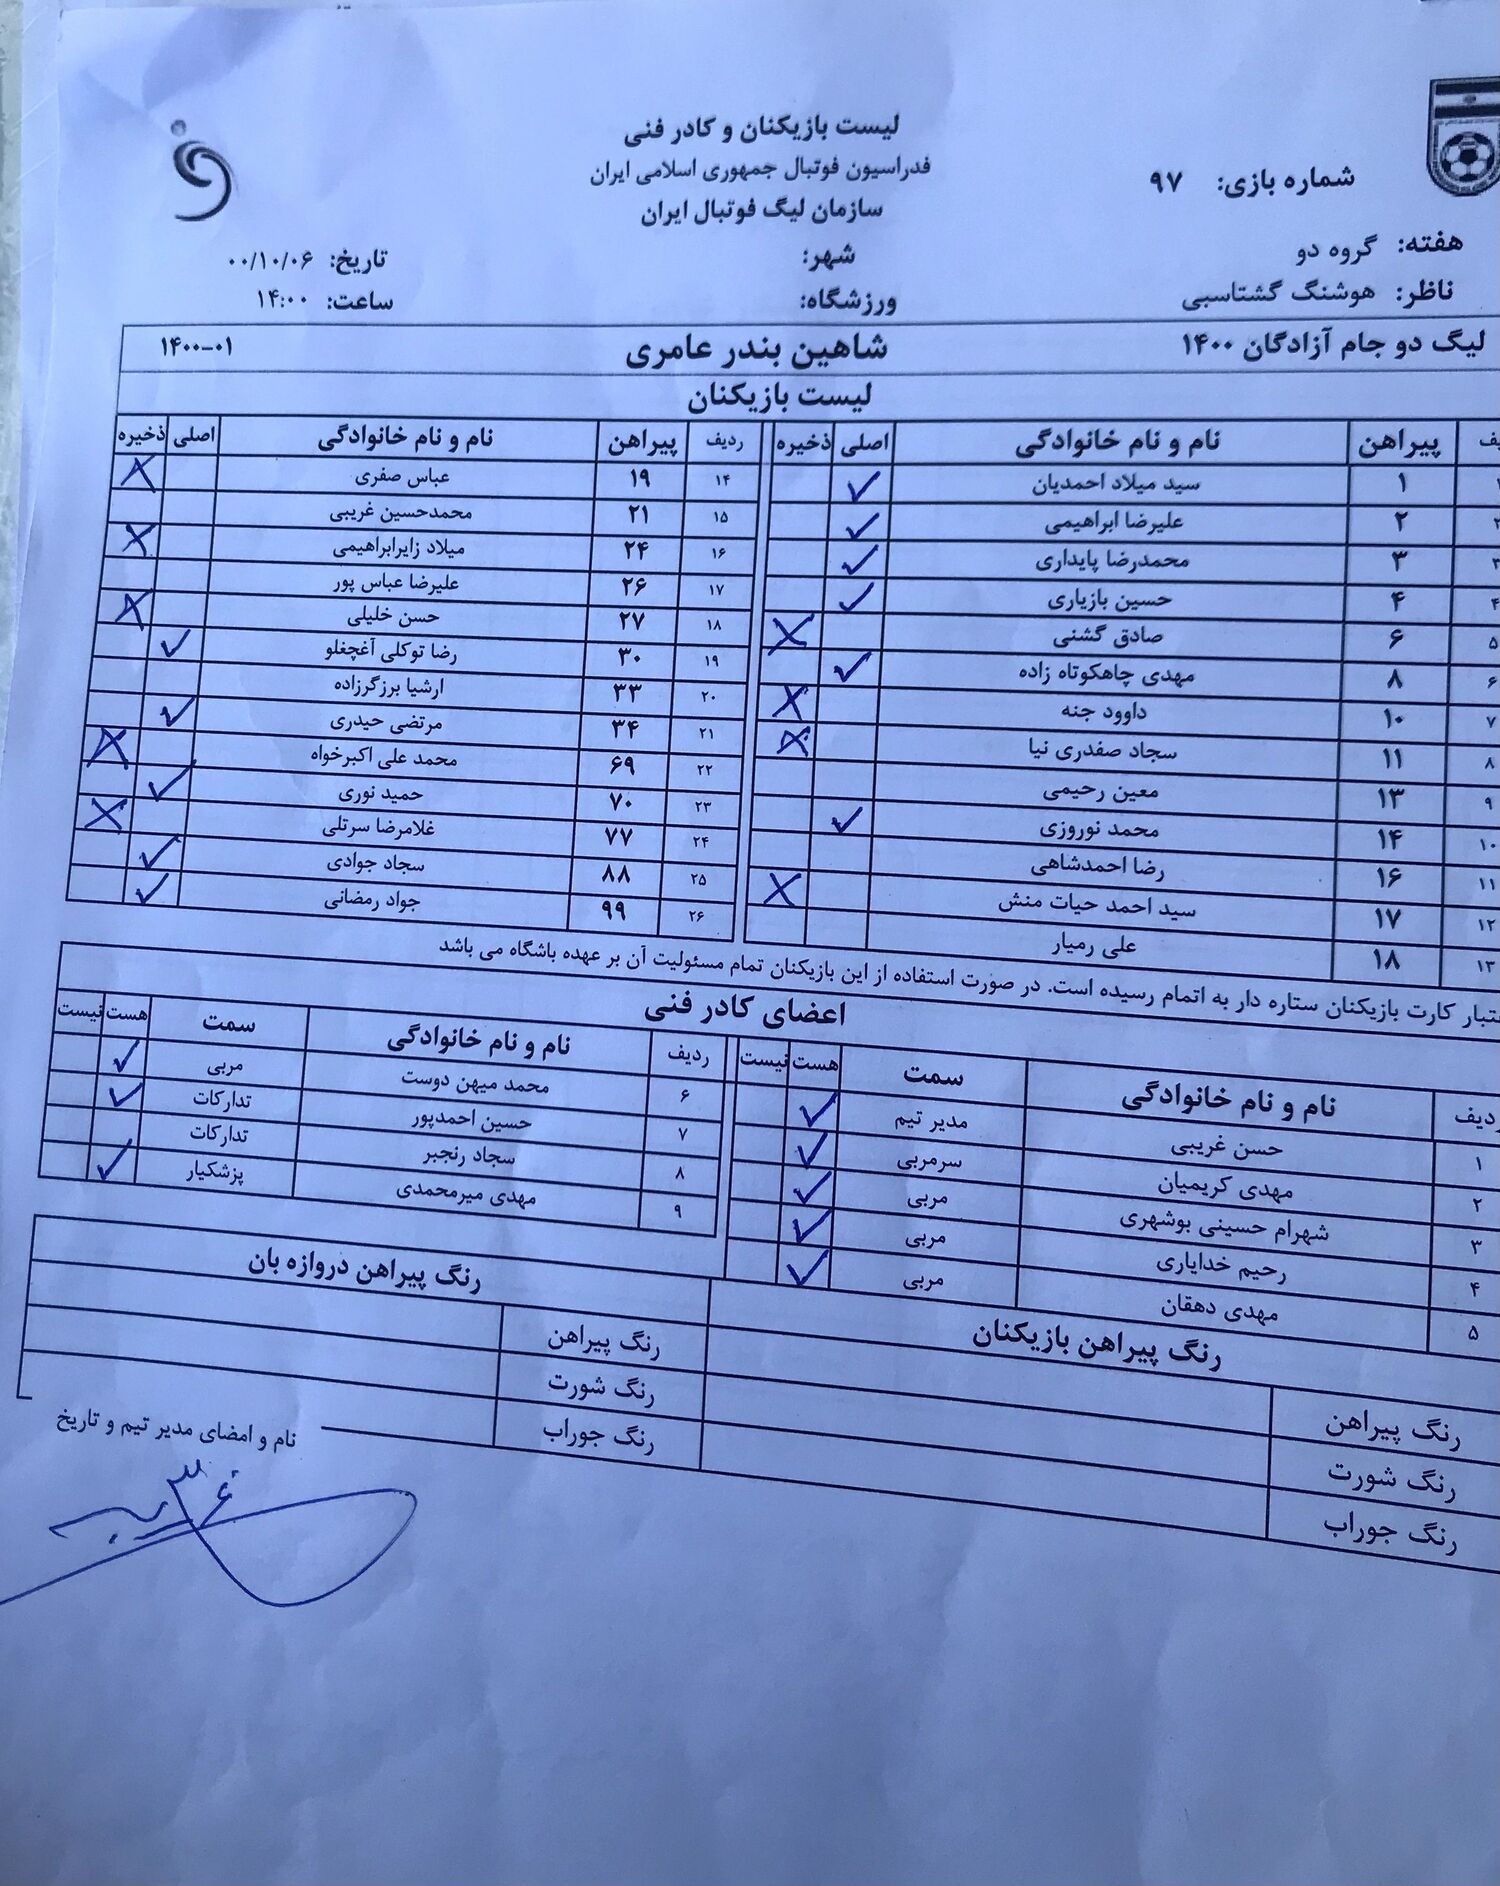 لیست بازیکنان و کادر فنی
فدراسیون فوتبال جمهوری اسلامی ایران
سازمان لیگ فوتبال ایران
شماره بازی: ۹۷
هفته: گروه دو
شهر:
تاریخ: ۰۰/۱۰/۰۶
ناظر: هوشنگ گشتاسبی
ورزشگاه:
ساعت: ۱۴:۰۰
لیگ دو جام آزادگان ۱۴۰۰
شاهین بندر عامری
۱۴۰۰-۰۱
لیست بازیکنان
پیراهن نام و نام خانوادگی اصلی ذخیره
۱ سید میلاد احمدیان ✓
۲ علیرضا ابراهیمی ✓
۳ ۳ محمدرضا پایداری ✓
۴ ۴ حسین بازیاری ✓
۵ ۶ صادق گشنی X
۶ ۸ مهدی چاهکوتاه زاده ✓
۷ ۱۰ داوود جنه X
۸ ۱۱ سجاد صفدری نیا X
۹ ۱۳ معین رحیمی
۱۰ ۱۴ محمد نوروزی ✓
۱۱ ۱۶ رضا احمدشاهی
۱۲ ۱۷ سید احمد حیات منش X
۱۳ ۱۸ علی رمیار
ردیف پیراهن نام و نام خانوادگی اصلی ذخیره
۱۴ ۱۹ عباس صفری X
۱۵ ۲۱ محمدحسین غریبی
۱۶ ۲۴ میلاد زایرابراهیمی X
۱۷ ۲۶ علیرضا عباس پور
۱۸ ۲۷ حسن خلیلی X
۱۹ ۳۰ رضا توکلی آغچغلو ✓
۲۰ ۳۳ ارشیا برزگرزاده
۲۱ ۳۴ مرتضی حیدری ✓
۲۲ ۶۹ محمد علی اکبرخواه X
۲۳ ۷۰ حمید نوری ✓
۲۴ ۷۷ غلامرضا سرتلی X
۲۵ ۸۸ سجاد جوادی ✓
۲۶ ۹۹ جواد رمضانی ✓
کارت بازیکنان ستاره دار به اتمام رسیده است. در صورت استفاده از این بازیکنان تمام مسئولیت آن بر عهده باشگاه می باشد
اعضای کادر فنی
ردیف نام و نام خانوادگی سمت هست نیست
۱ حسن غریبی مدیر تیم ✓
۲ مهدی کریمیان سرمربی ✓
۳ شهرام حسینی بوشهری مربی ✓
۴ رحیم خدایاری مربی ✓
۵ مهدی دهقان مربی ✓
ردیف نام و نام خانوادگی سمت هست نیست
۶ محمد میهن دوست مربی ✓
۷ حسین احمدپور تدارکات ✓
۸ سجاد رنجبر تدارکات
۹ مهدی میرمحمدی پزشکیار ✓
رنگ پیراهن بازیکنان
رنگ پیراهن
رنگ شورت
رنگ جوراب
رنگ پیراهن دروازه بان
رنگ پیراهن
رنگ شورت
رنگ جوراب
نام و امضای مدیر تیم و تاریخ